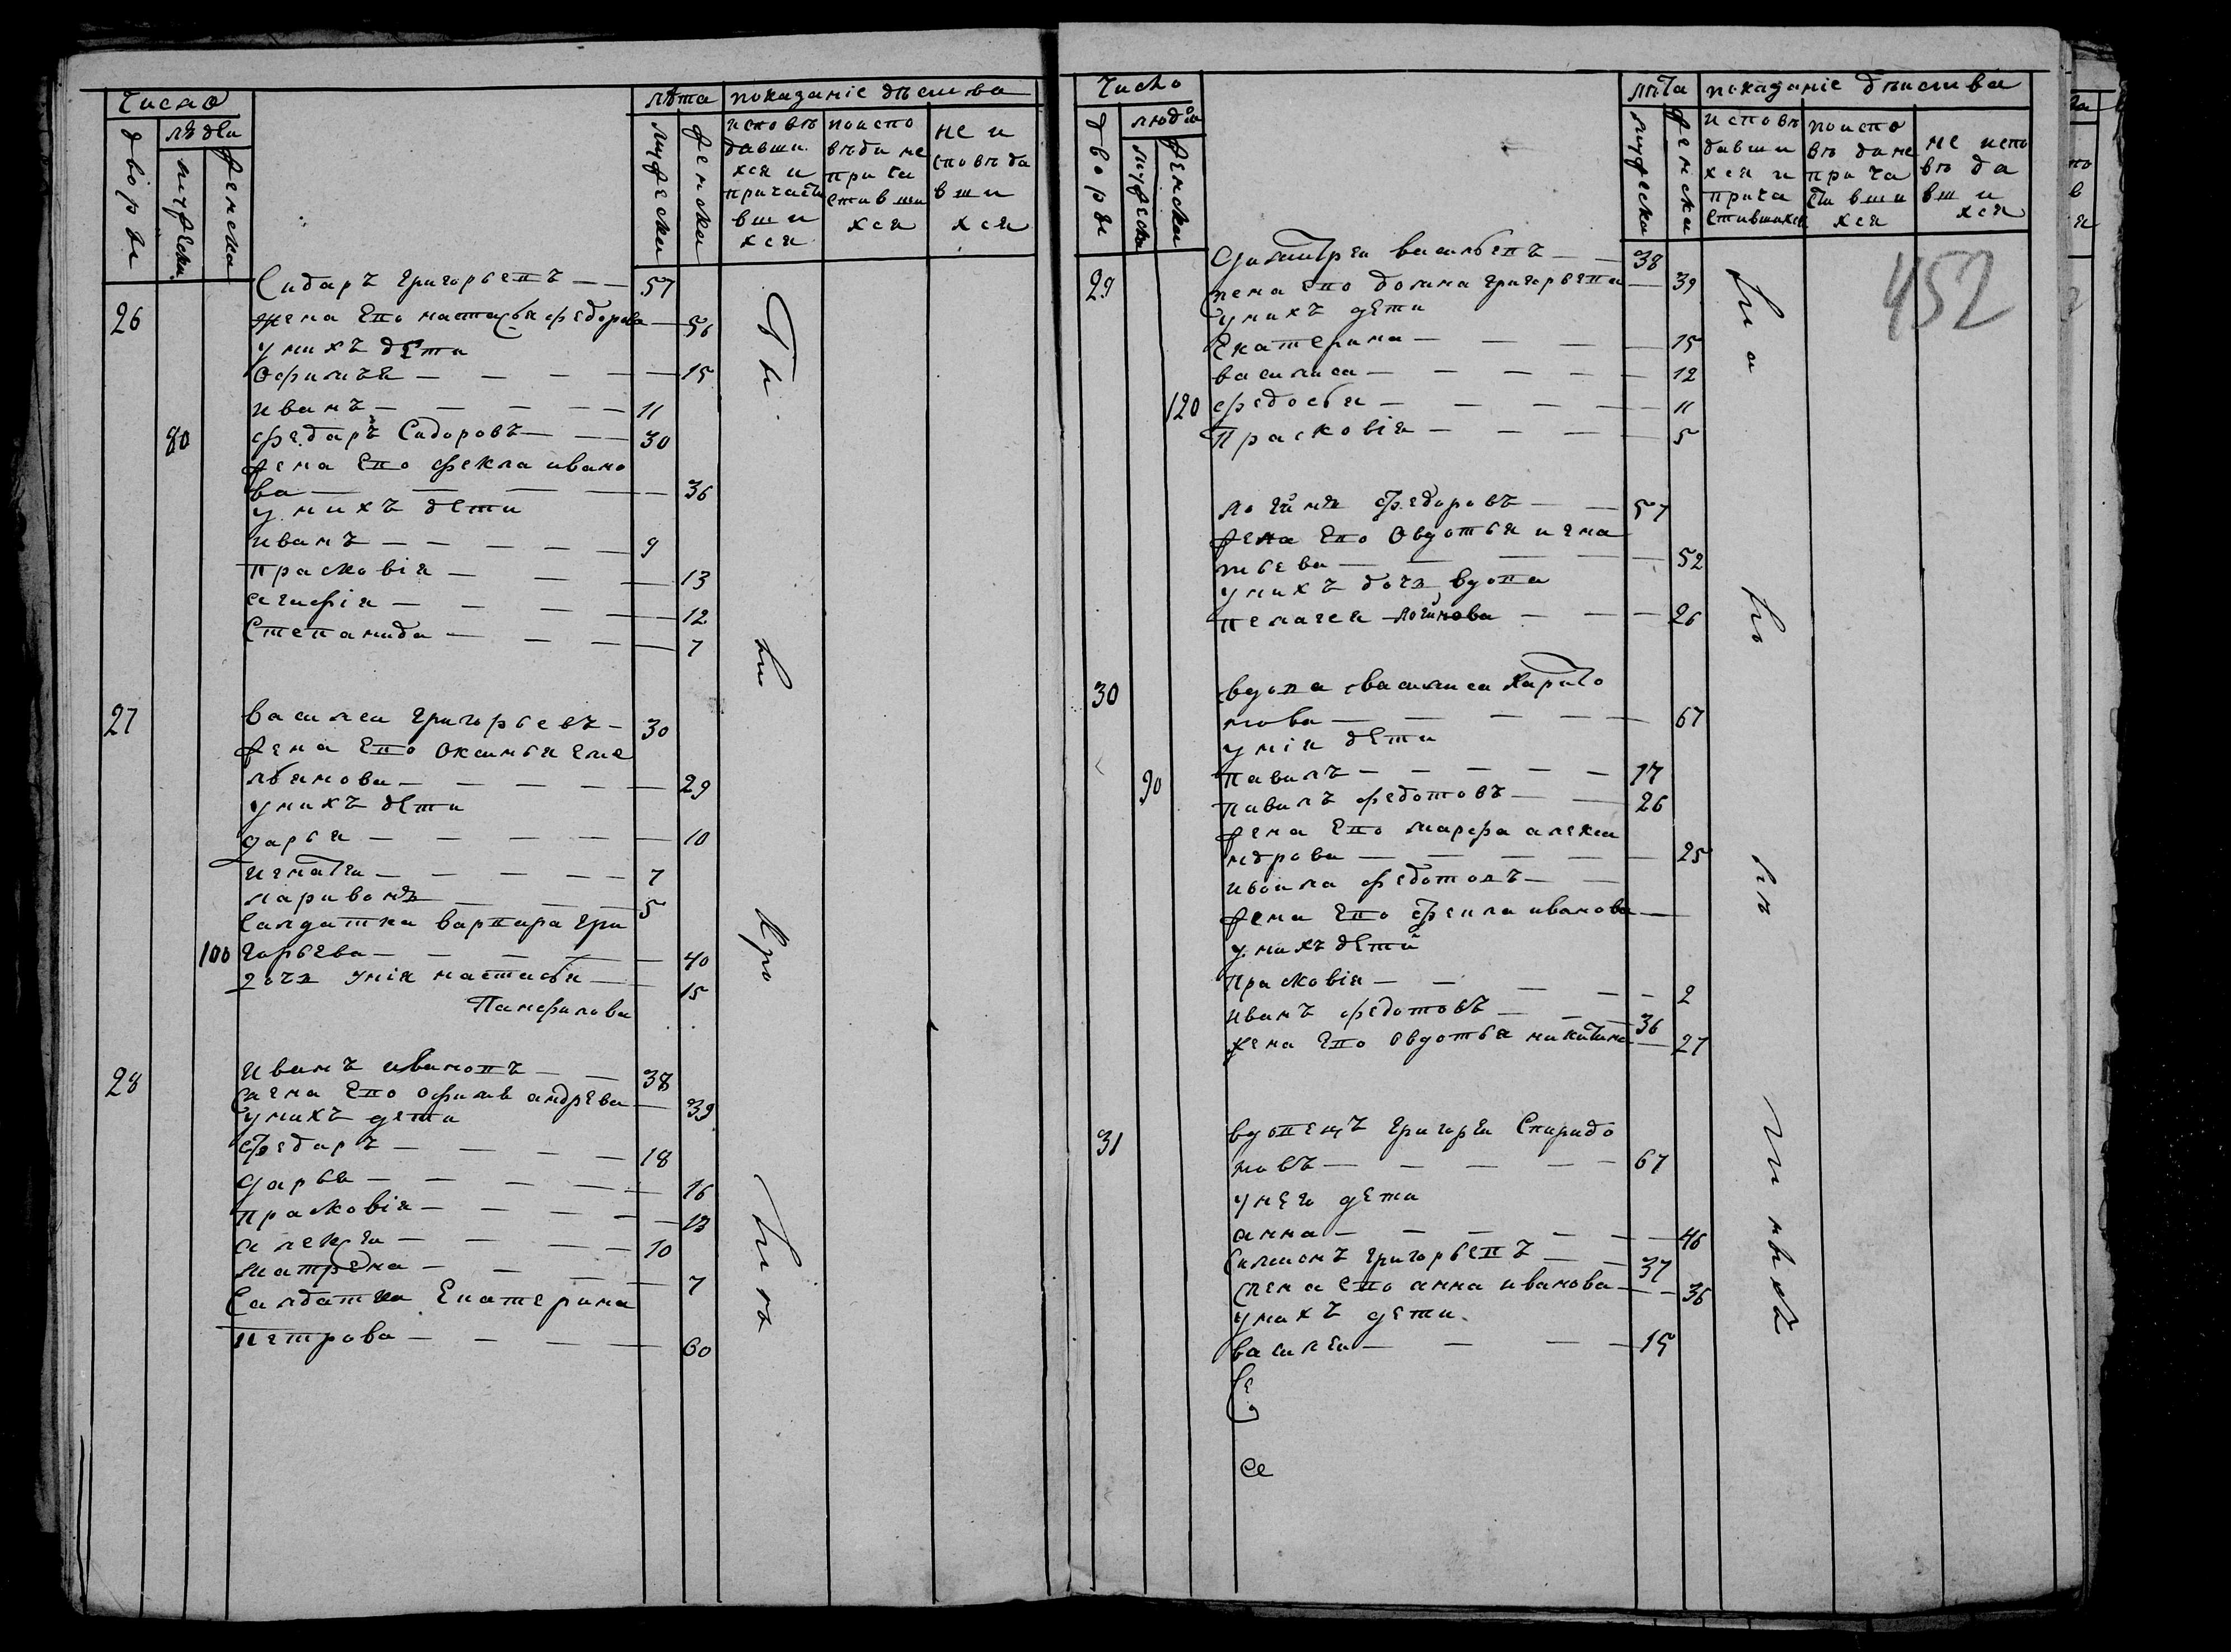 Число
людеи
лѣта показаніе дѣиства
дворы
мужески
женски
мужески
женски
исповѣ
давши
хся и
причасти
вши
хся
поиспо
вѣди не
прича
стивши
хся
не и
сповѣда
вши
хся
26 Сидаръ григорьевъ 57
жена Ево настасья федорова 56
у нихъ дети
Офимья 15
иванъ 11
80 федаръ Сидоровъ 30
жена Ево фекла ивано
ва 36
у нихъ дети
иванъ 9
прасковія 13
агафія 12
Степанида 7
27 василеи григорьевъ 30
жена Ево Оксинья еме
льянова 29
у нихъ дети
дарья 10
игнатеи 7
ларивонъ 5
Салдатка варвара гри
100 горьева 40
дочь у нія настасья 15
Панфилова
28 иванъ ивановъ 38
жена Ево офимья андрева 39
у нихъ дети
федаръ 18
дарья 16
прасковія 13
алекѣи 10
матрена 7
Салдатка Екатерина
петрова 60
Число
людеи
лѣта показаніе дѣиства
дворы
мужески
женски
мужески
женски
исповѣ
давши
хся и
прича
стившихся
поиспо
вѣди не
прича
стивши
хся
не испо
вѣда
вши
хся
452
29 Димитреи васильевъ 38
жена Ево домна григорьева 39
у нихъ дети
Екатерина 15
василиса 12
120 федосья 11
Прасковія 5
логинъ федоровъ 57
жена Ево Овдотья игна
тьева 52
у нихъ дочь вдова
пелагея логинова 26
30 вдова василиса Харито
нова 67
у нія дети
павилъ 17
90 павилъ федотовъ 26
жена Ево марфа алекса
ндрова 25
федотовъ
жена Ево фекла иванова
у нихъ детй
Прасковія 2
иванъ федотовъ 36
жена Ево Овдотья никитина 27
31 вдовецъ григореи Спиридо
новъ 67
у него дети
анна 46
Симионъ григорьевъ 37
жена ево анна иванова 36
у нихъ дети
василеи 15